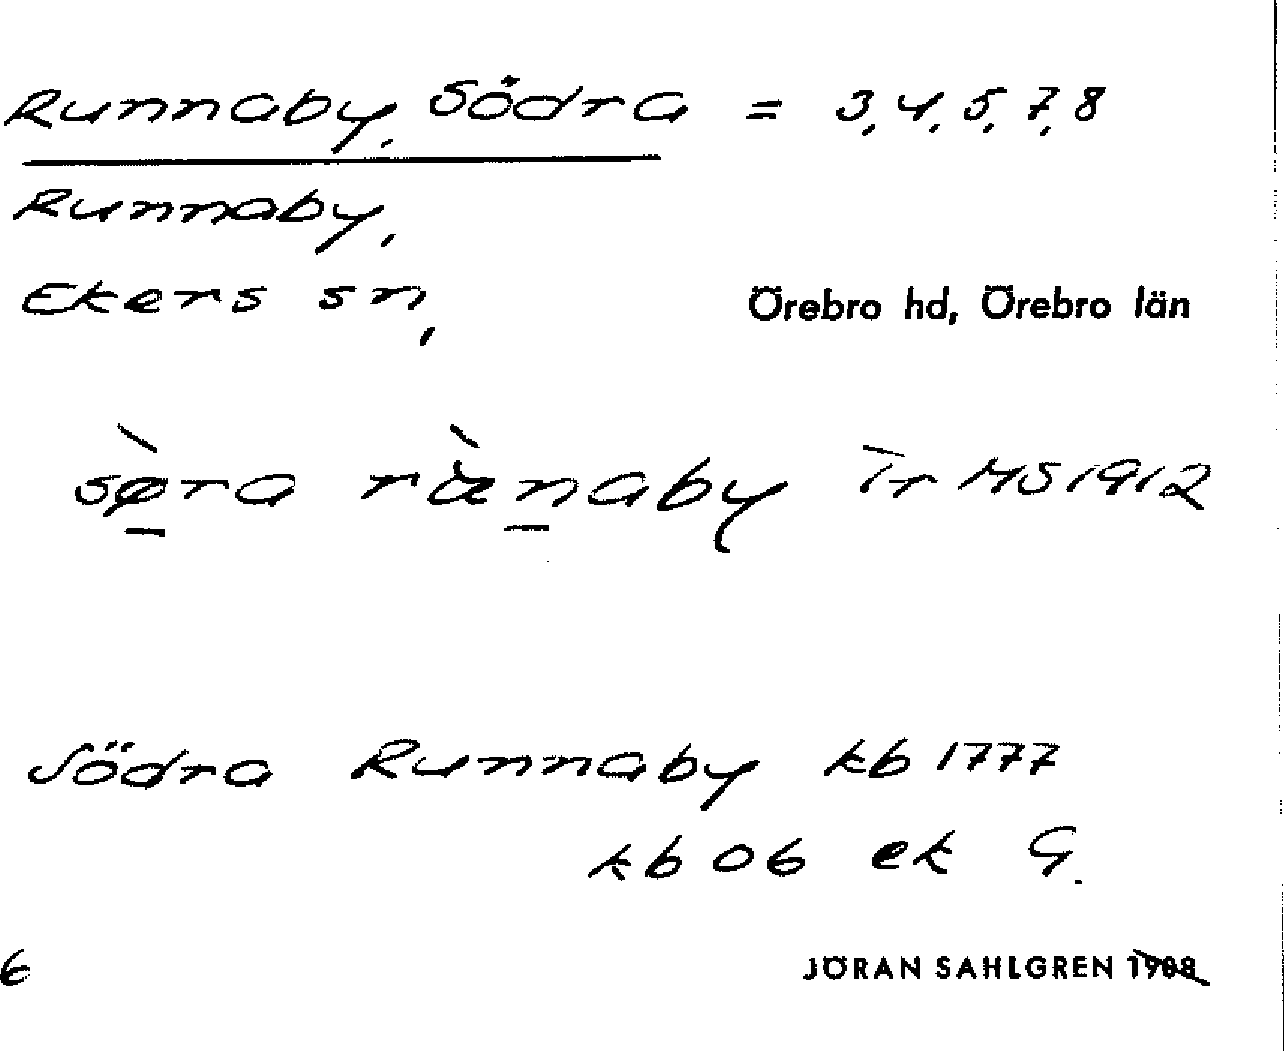 Runnaby, Södra = 3, 4, 5, 7, 8
Runnaby,
Ekers sn, Örebro hd, Örebro län
sø̀ra ræ̀naby Tr MS 1912
Södra Runnaby kb 1777
kb 06 ek G.
6 JÖRAN SAHLGREN 1908